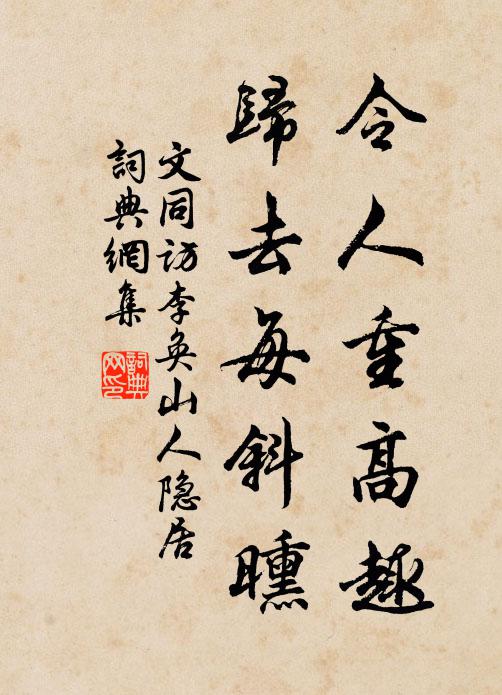 令人重高趣
歸去每斜曛
文同访李奂山人隐居
詞典網集
詞典
网印